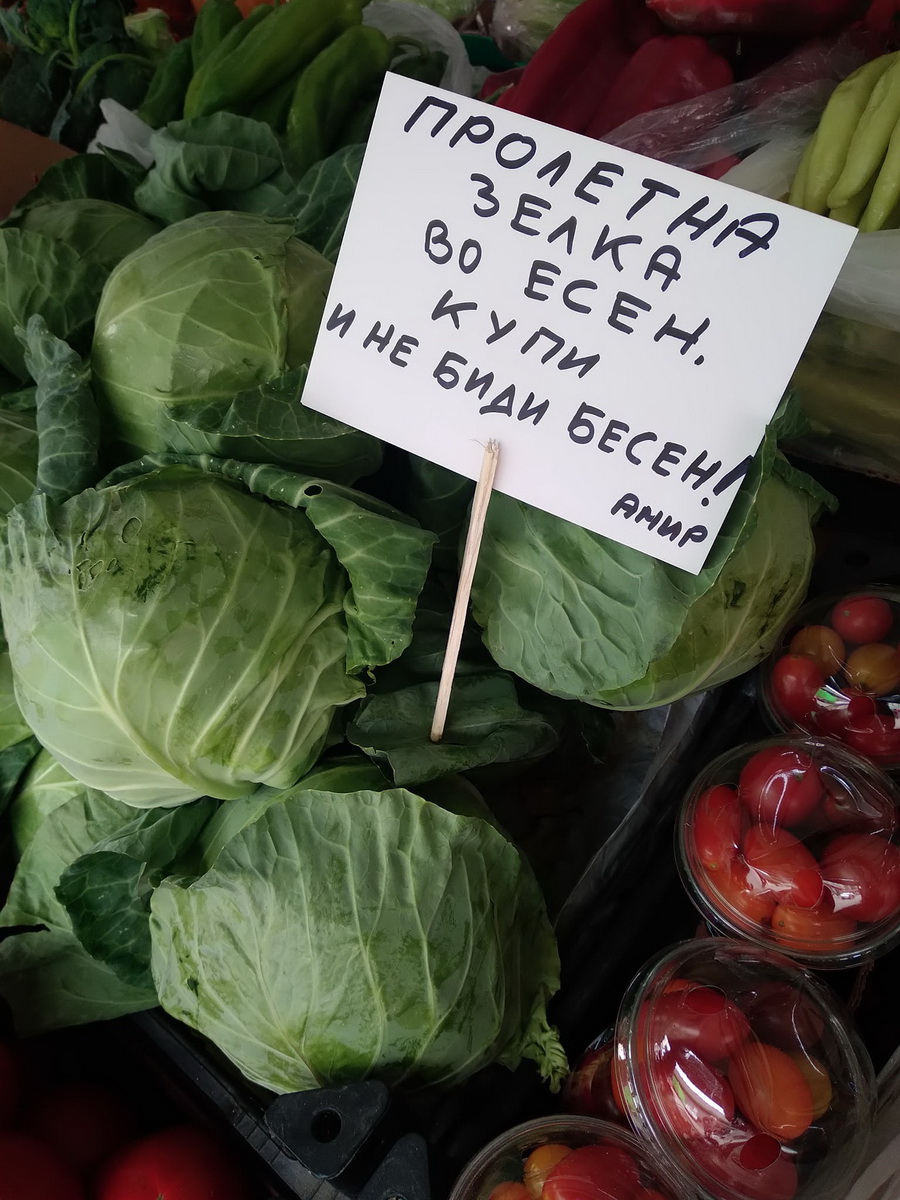 ПРОЛЕТНА
ЗЕЛКА
ВО ЕСЕН.
КУПИ
И НЕ БИДИ БЕСЕН!
АМИР